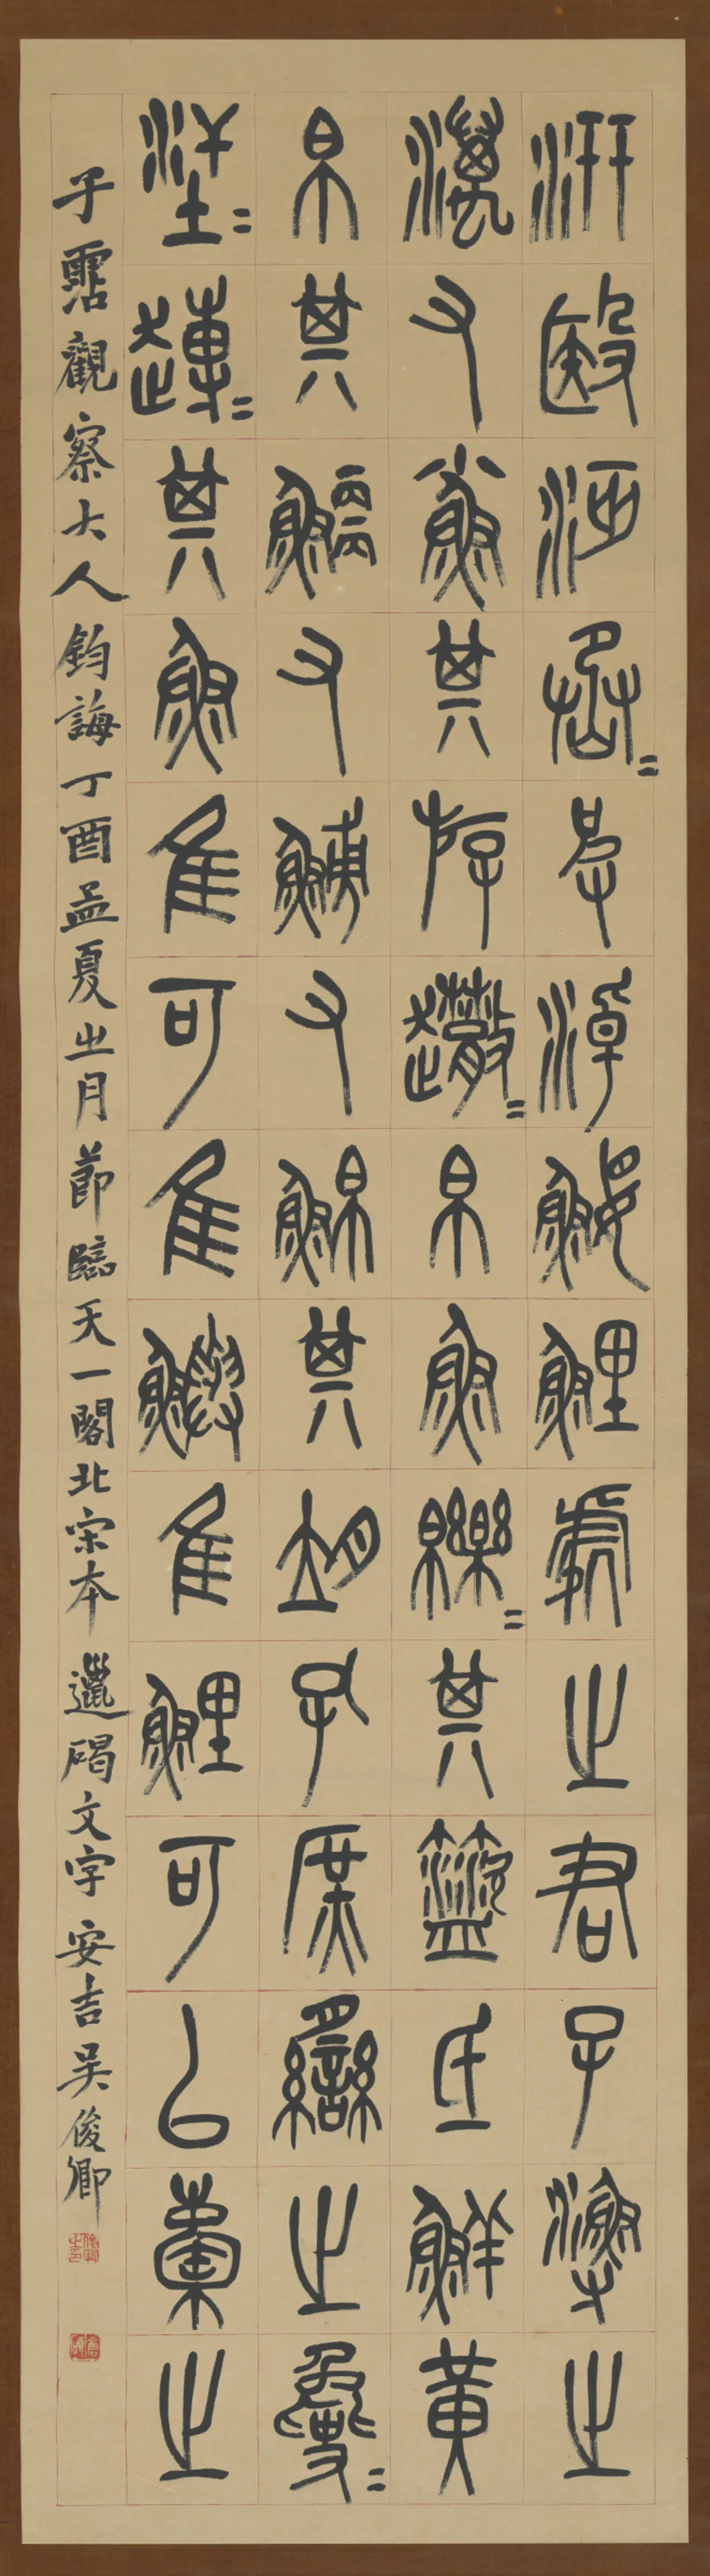 汧殹沔丞=皮淖鰋鯉處之君子漁之
澫又小魚其斿趣=帛魚皪=其盜氐鮮黃
帛其鯾又鰟又鮊其孔庶臠之毚=
其魚隹可隹鱮隹鯉可㠯橐之
子霑觀察大人鈞誨丁酉孟夏之月節臨天一閣北宋本邋碣文字安吉吳俊卿